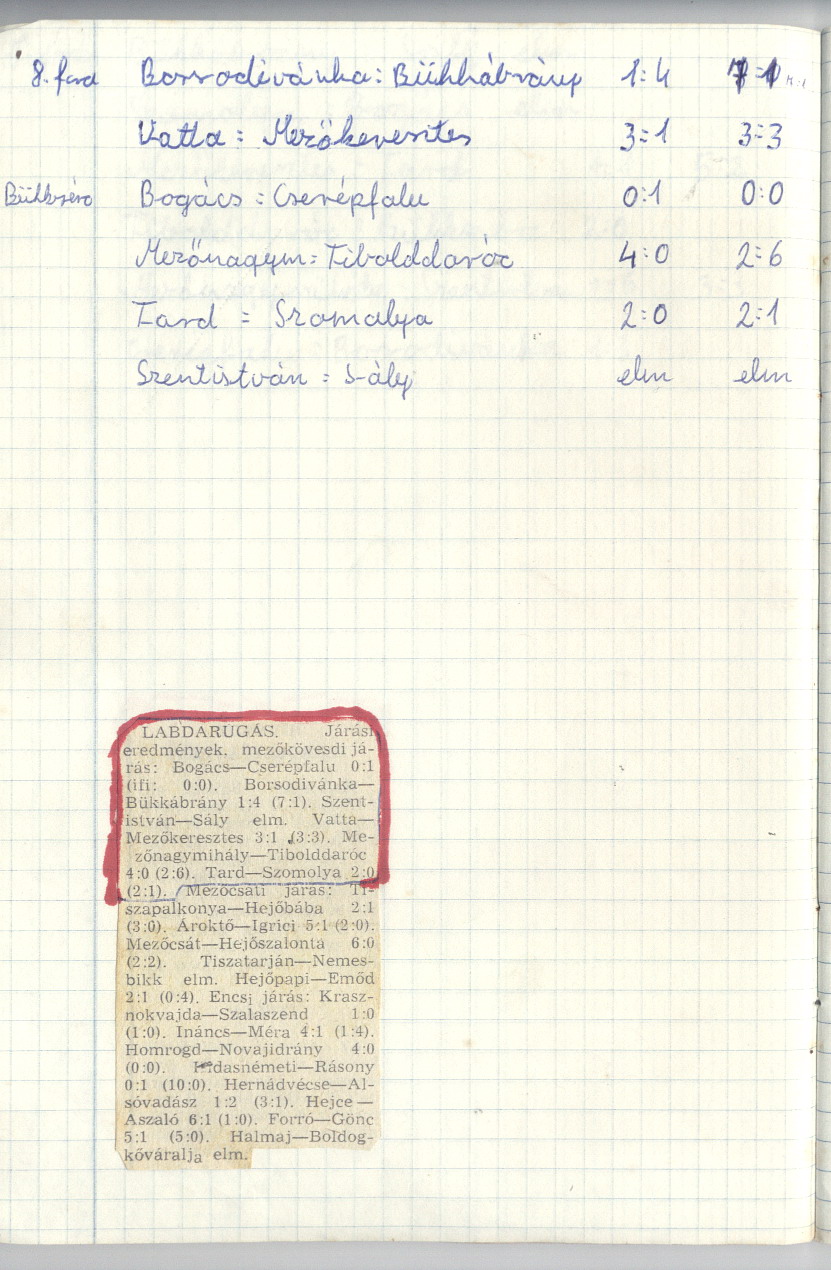 8. ford Borsodivánka = Bükkábrány 1:4 7:1
Vatta = Mezőkeresztes 3=1 3=3
Bogács = Cserépfalu 0:1 0:0
Mezőnagym = Tibolddaróc 4:0 2=6
Tard = Szomolya 2=0 2=1
Szentistván = Sály elm elm
LABDARUGÁS. Járási
eredmények, mezőkövesdi já-
rás: Bogács—Cserépfalu 0:1
(ifi: 0:0). Borsodivánka—
Bükkábrány 1:4 (7:1). Szent-
istván—Sály elm. Vatta—
Mezőkeresztes 3:1 (3:3). Me-
zőnagymihály—Tibolddaróc
4:0 (2:6). Tard—Szomolya 2:0
(2:1). Mezőcsáti járás: Ti-
szapalkonya—Hejőbába 2:1
(3:0). Ároktő—Igrici 5:1 (2:0).
Mezőcsát—Hejőszalonta 6:0
(2:2). Tiszatarján—Nemes-
bikk elm. Hejőpapi—Emőd
2:1 (0:4). Encsi járás: Krasz-
nokvajda—Szalaszend 1:0
(1:0). Ináncs—Méra 4:1 (1:4).
Homrogd—Novajidrány 4:0
(0:0). Hidasnémeti—Rásony
0:1 (10:0). Hernádvécse—Al-
sóvadász 1:2 (3:1). Hejce—
Aszaló 6:1 (1:0). Forró—Gönc
5:1 (5:0). Halmaj—Boldog-
kőváralja elm.